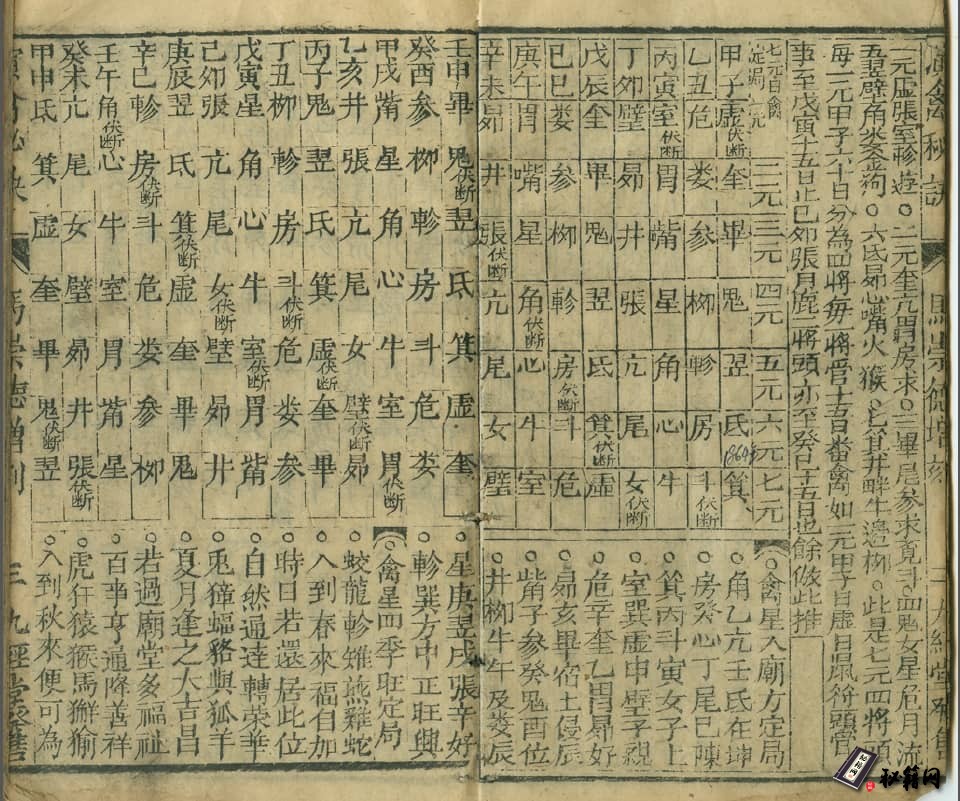 一元虛張室軫遊。二元奎亢胃房求。三畢尾參求覓斗。四鬼女星危月流
五翌壁角婁金狗。六氐昴心嘴火猴。七箕井畔牛邊栁。此是七元四將頭
每一元甲子六十日分為四將每一將管十五日番禽如一元甲子日虛日鼠符頭管
事至戊寅十五日止己卯張月鹿二將頭亦至癸巳十五日也餘倣此推
七元日禽定局 一元 二元 三元 四元 五元 六元 七元
甲子 虛伏断 奎 畢 鬼 翌 氐 1864 箕
乙丑 危 婁 參 栁 軫 房 斗伏断
丙寅 室伏断 胃 嘴 星 角 心 牛
丁卯 壁 昴 井 張 亢 尾 女伏断
戊辰 奎 畢 鬼 翌 氐 箕伏断 虛
己巳 婁 參 栁 軫 房伏断 斗 危
庚午 胃 嘴 星 角伏断 心 牛 室
辛未 昴 井 張伏断 亢 尾 女 壁
○禽星入廟方定局
○角乙亢壬氐在坤
○房癸心丁尾巳陳
○箕丙斗寅女子上
○室巽虛申壁子親
○危辛奎乙胃昴好
○昴亥畢宿土侵辰
○觜子參癸鬼酉位
○井栁牛午及婁辰
壬申 畢 鬼伏断 翌 氐 箕 虛 奎
癸酉 參 栁 軫 房 斗 危 婁
甲戌 觜 星 角 心 牛 室 胃伏断
乙亥 井 張 亢 尾 女 壁伏断 昴
丙子 鬼 翌 氐 箕 虛伏断 奎 畢
丁丑 栁 軫 房 斗伏断 危 婁 參
戊寅 星 角 心 牛 室伏断 胃 觜
己卯 張 亢 尾 女伏断 壁 昴 井
庚辰 翌 氐 箕伏断 虛 奎 畢 鬼
辛巳 軫 房伏断 斗 危 婁 參 栁
壬午 角伏断 心 牛 室 胃 觜 星
癸未 亢 尾 女 壁 昴 井 張伏断
甲申 氐 箕 虛 奎 畢 鬼伏断 翌
○星庚翌戌張辛好
○軫巽方中正旺興
○禽星四季旺定局
○蛟龍軫雉燕雞蛇
○入到春來福自加
○時日若還居此位
○自然通達轉荣華
○兎獐蝠貉與狐羊
○夏月逢之大吉昌
○若過廟堂多福祉
○百事亨通降善祥
○虎犴猿猴馬獬㺄
○入到秋來便可為
秘籍网